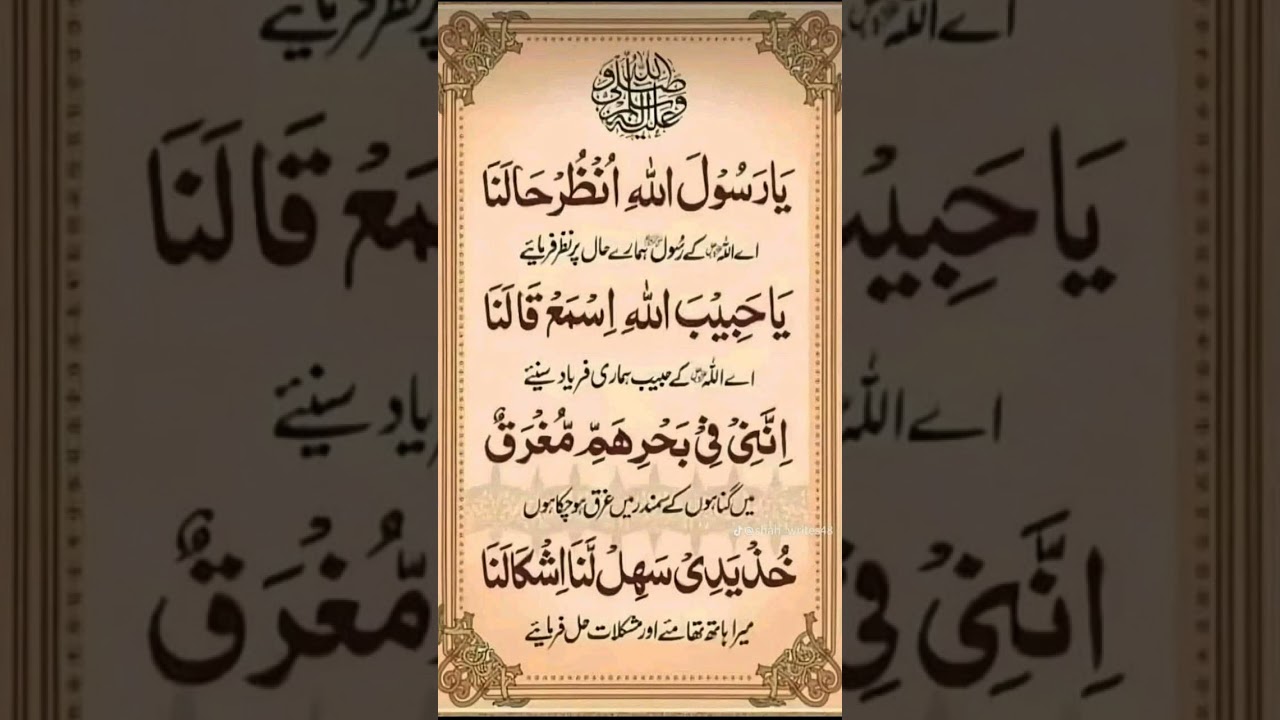 صلى الله عليه وسلم
يَارَسُوْلَ اللهِ اُنْظُرْ حَالَنَا
اے اللہ کے رسول ہمارے حال پر نظر فرمایئے
يَا حَبِيْبَ اللهِ اِسْمَعْ قَالَنَا
اے اللہ کے حبیب ہماری فریاد سنیئے
اِنَّنِیْ فِیْ بَحْرِ هَمٍّ مُّغْرَقٌ
میں گناہوں کے سمندر میں غرق ہوچکا ہوں
خُذْ يَدِیْ سَهِلْ لَّنَا اِشْكَالَنَا
میرا ہاتھ تھامئے اور مشکلات حل فرمایئے